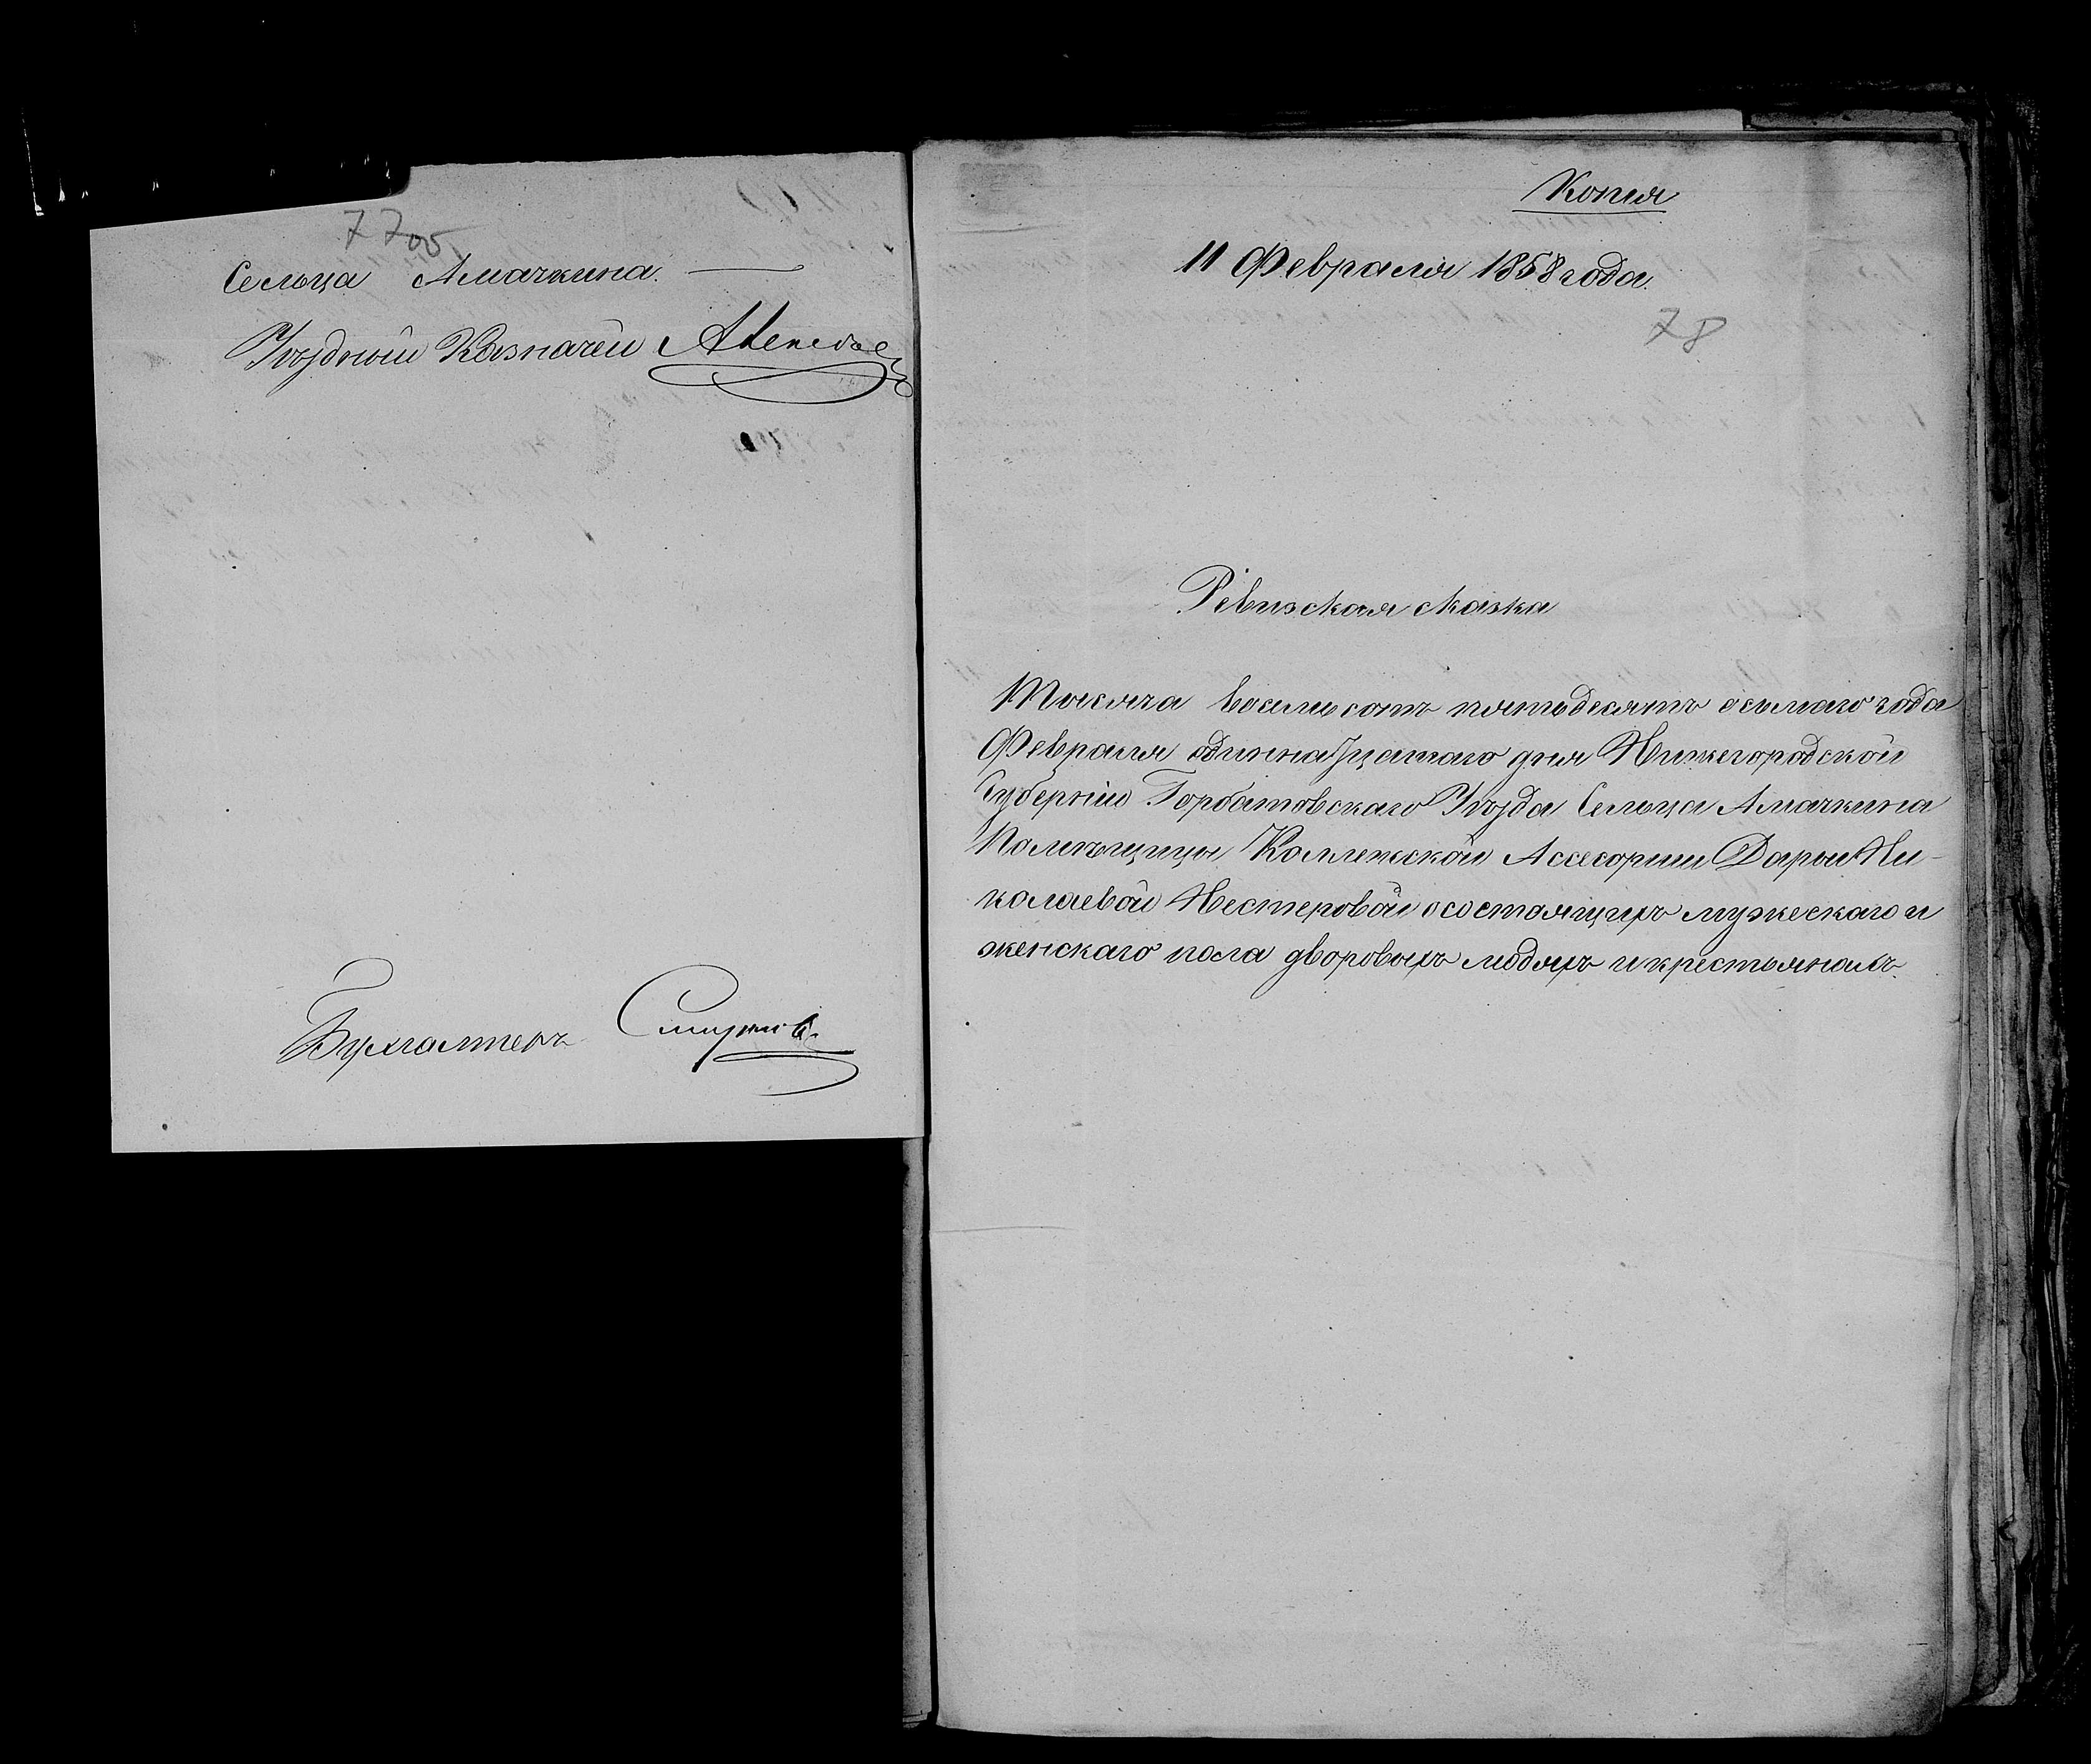 77 об.
Сельца Амачкина.
Уѣздный Казначей
Бухгалтеръ Смирновъ
Копія
11 Февраля 1858 года.
78
Ревизская сказка
Тысяча восемьсотъ пятьдесятъ осьмаго года
Февраля одиннадцатаго дня Нижегородской
Губерніи Горбатовскаго Уѣзда Сельца Амачкина
Помѣщицы Коллежской Ассесорши Дарьи Ни-
колаевой Нестеровой о состоящихъ мужескаго и
женскаго пола дворовыхъ людяхъ и крестьянахъ.